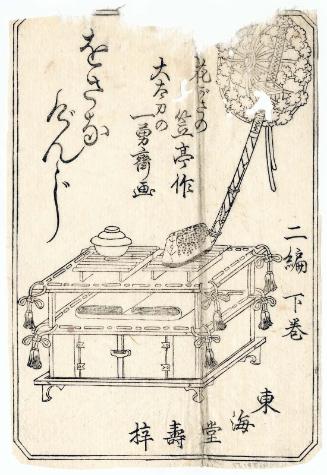 二編 下巻
花がさの
笠亭作
大太刀の
一勇齋画
をさな
げんじ
東海堂壽梓